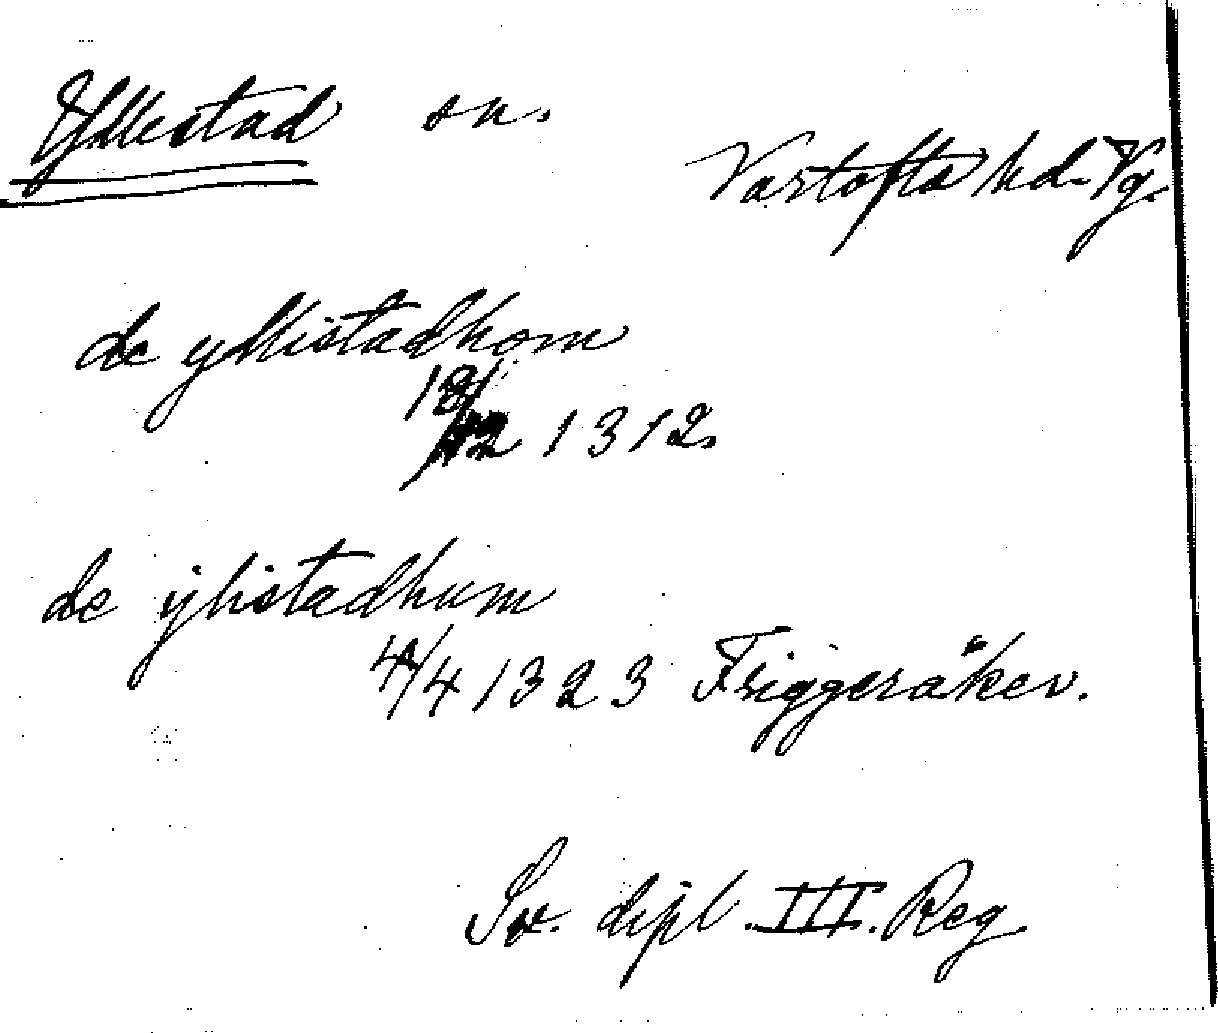 Yllestad sn.
Vartofta hd. Vg.
de yllistadhom
18/12 1312.
de ylistadhum
4/4 1323 Friggeråker.
Sv. dipl. III. Reg